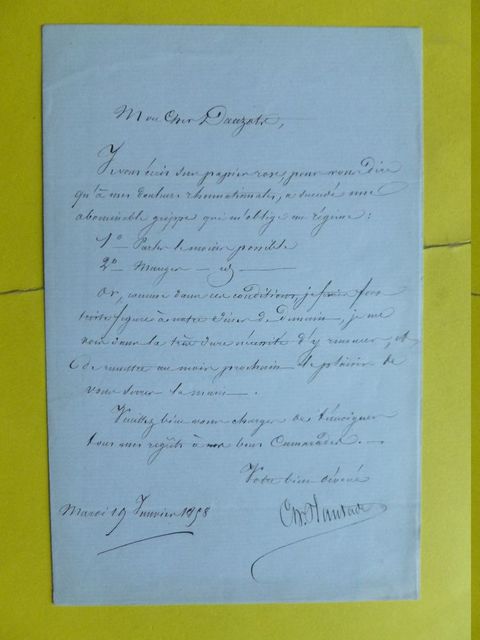 Mon Cher Dauzats,
Je vous écris sur papier rose, pour vous dire
qu'à mes douleurs rhumatismales, a succédé une
abominable grippe qui m'oblige au régime:
1° Parler le moins possible
2° Manger — id —
Or, comme dans ces conditions, je ferais fort
triste figure à notre dîner de Demain, je me
vois dans la très dure nécessité d'y renoncer, et
de remettre au mois prochain le plaisir de
vous serrer la main.
Veuillez bien vous charger de témoigner
tous mes regrets à nos bons Camarades. —
Votre bien dévoué
Mardi 19 Janvier 1858